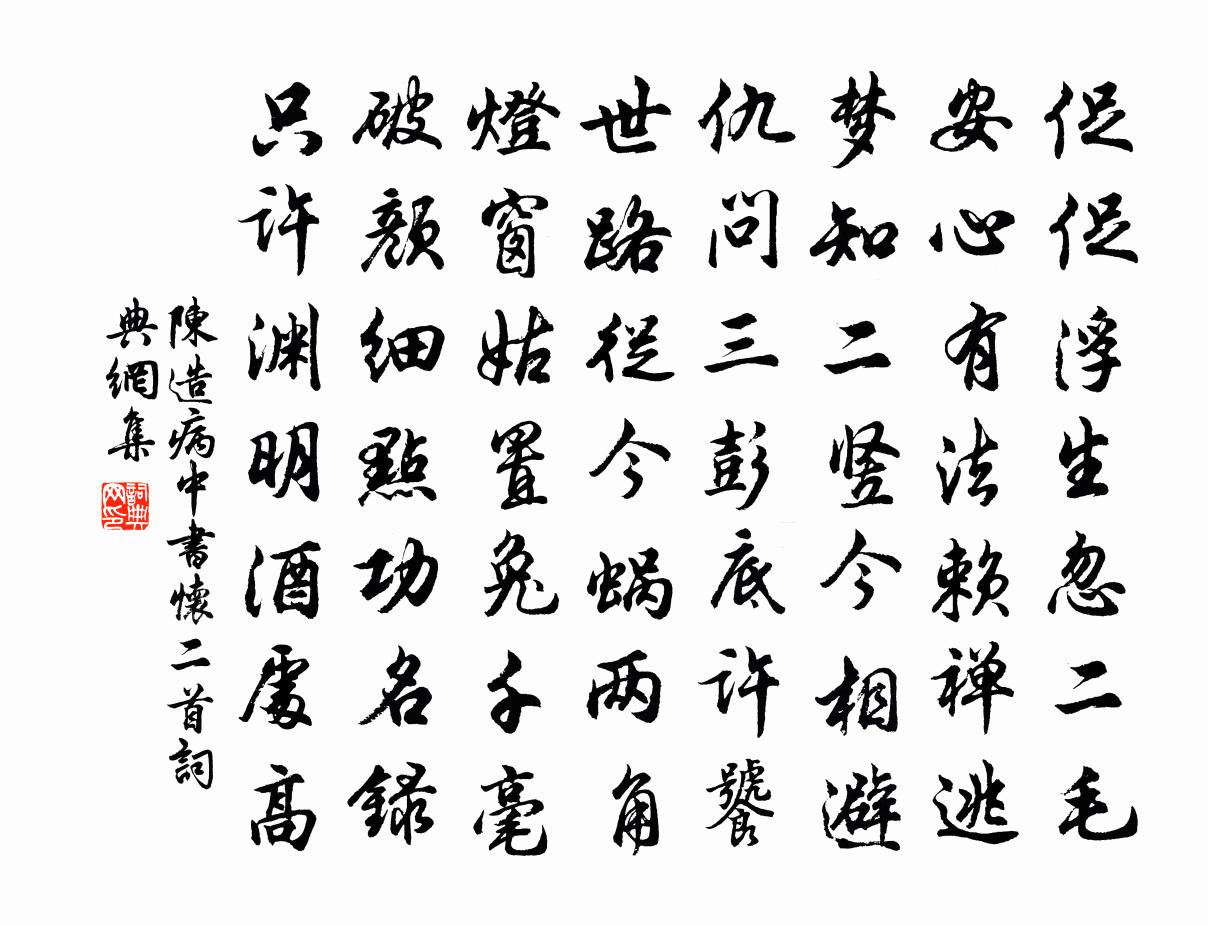 促促浮生忽二毛
安心有法赖禅逃
梦知二竖今相避
仇问三彭底许饕
世路従今蜗两角
燈窗姑置兔千毫
破颜细點功名録
只许渊明酒處高
陳造病中書懷二首詞
典網集
詞典网印